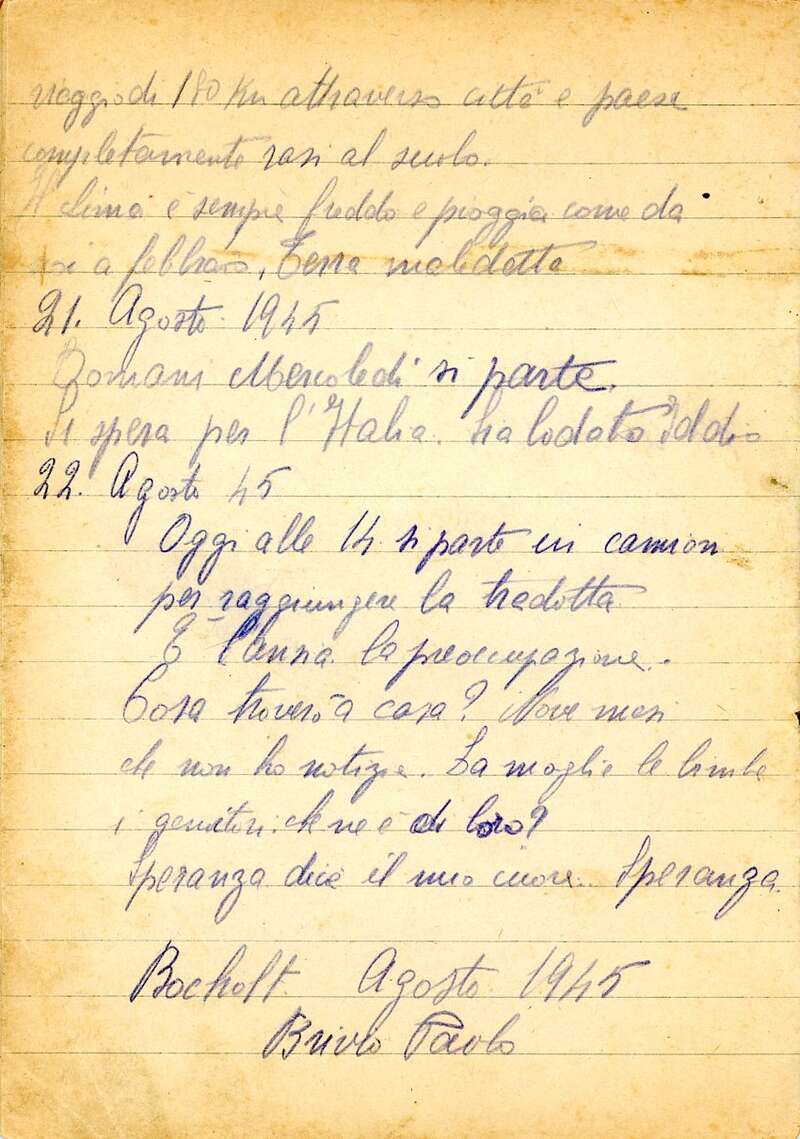 viaggio di 180 Km attraverso città e paesi
completamente rasi al suolo.
Il clima è sempre freddo e pioggia come da
noi a febbraio. Terra maledetta
21. Agosto 1945
Domani Mercoledi si parte.
Si spera per l'Italia. Sia lodato Iddio
22. Agosto 45
Oggi alle 14 si parte in camion
per raggiungere la tradotta
È l'ansia. la preoccupazione.
Cosa troverò a casa? Nove mesi
che non ho notizie. La moglie le bimbe
i genitori. che ne è di loro?
Speranza dice il mio cuore. Speranza.
Bocholt Agosto 1945
Brivio Paolo